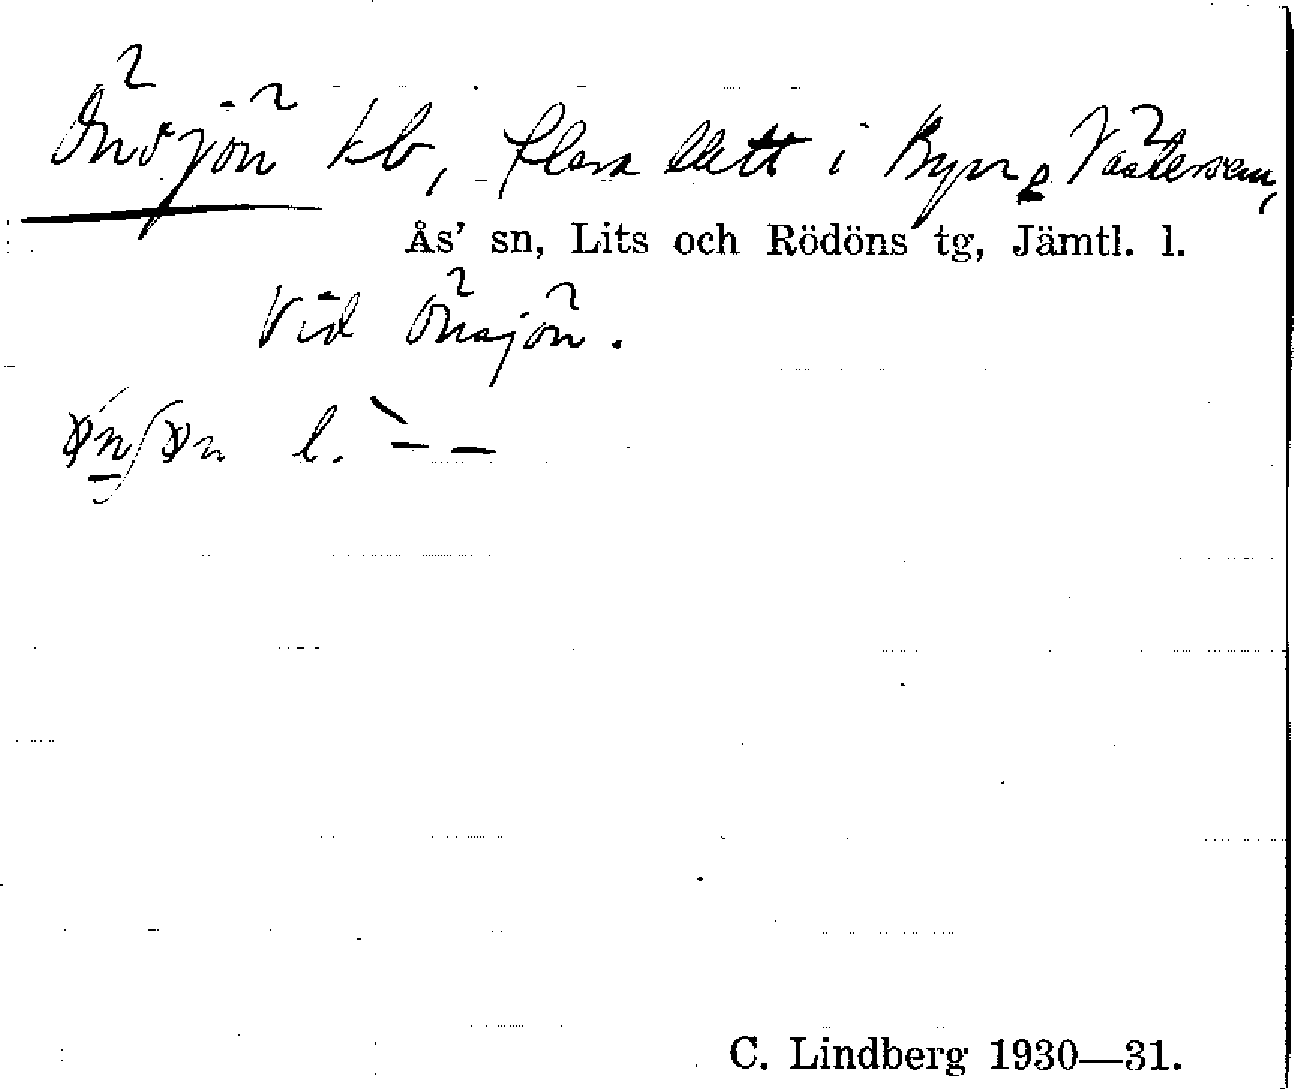 Önsjön kb, flera lätt i Byn, Västersem,
Ås' sn, Lits och Rödöns tg, Jämtl. l.
Vid Önsjön.
l.
C. Lindberg 1930—31.